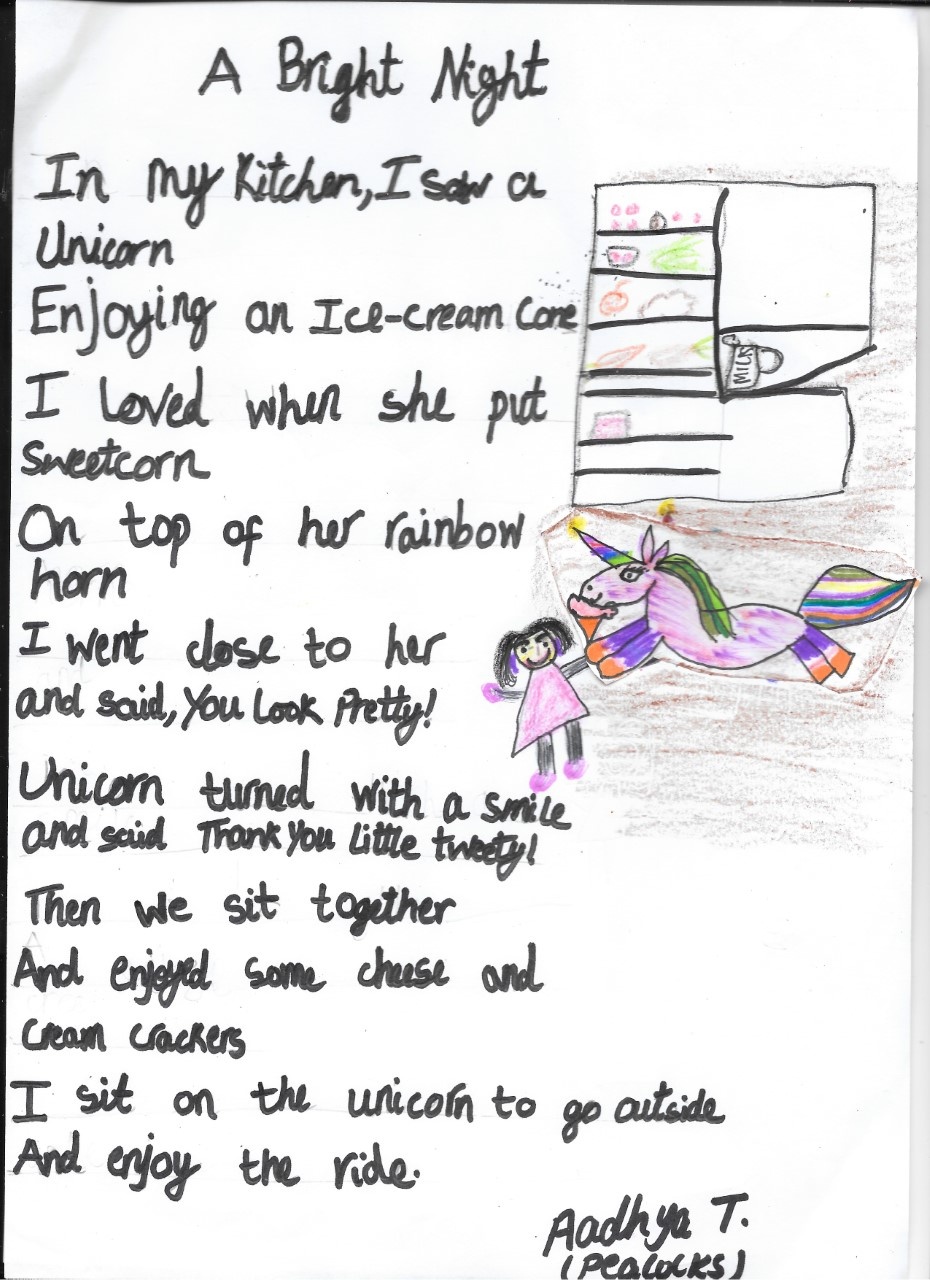 A Bright Night
In my Kitchen, I saw a
Unicorn
Enjoying an Ice-cream Cone
I Loved when she put
Sweetcorn
On top of her rainbow
horn
I went close to her
and said, You Look Pretty!
Unicorn turned with a smile
and said Thank You Little tweety!
Then we sit together
And enjoyed some cheese and
Cream Crackers
I sit on the unicorn to go outside
And enjoy the ride.
Aadhya T.
(PEACOCKS)
MILK